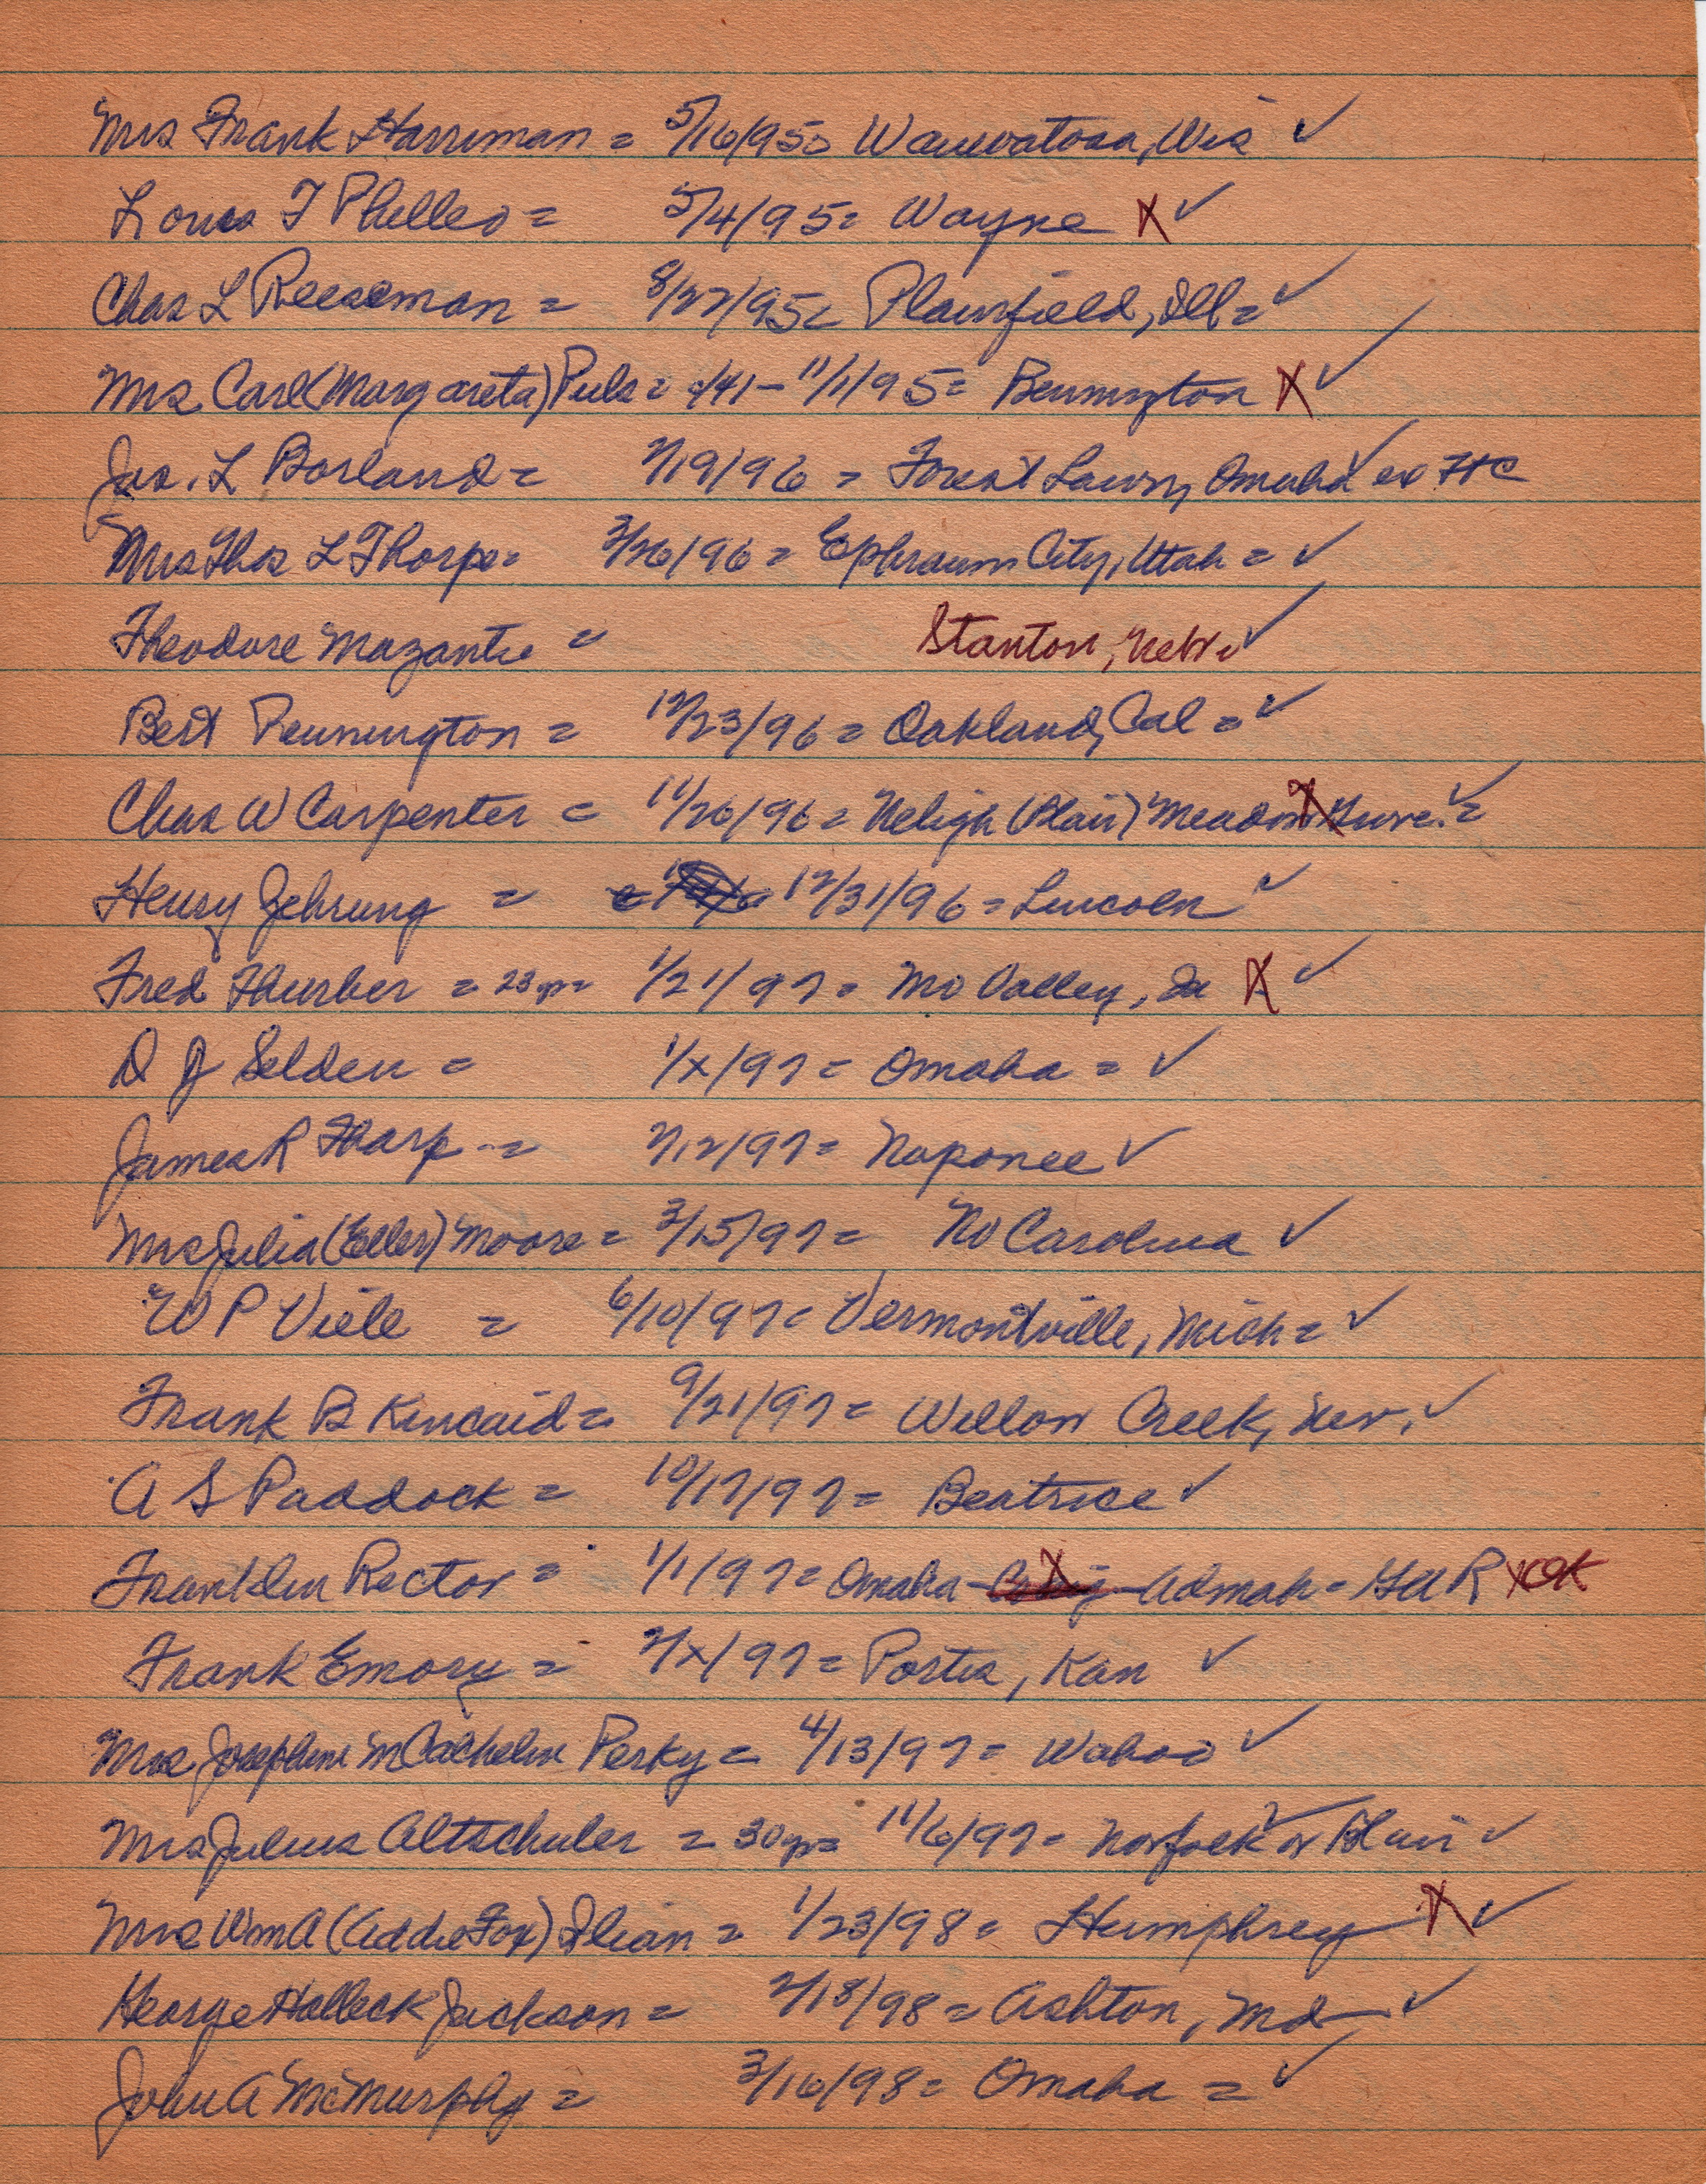 Mrs Frank Harriman = 5/16/95= Wauwatosa, Wis ✓
Louis T Philleo = 5/4/95= Wayne X ✓
Chas L Reeseman = 8/27/95= Plainfield, Ill= ✓
Mrs Carl (Margareta) Puls = /41 - 11/1/95= Bennington X ✓
Jas. L Borland = 7/19/96 = Forest Lawn, Omaha ✓
Mrs Thos L Thorpe= 3/26/96 = Ephraim City, Utah = ✓
Theodore Mazante = Stanton, Nebr= ✓
Bert Pennington = 12/23/96 = Oakland, Cal = ✓
Chas W Carpenter = 11/26/96 = Neligh (Plair) Meadow Grove. X ✓=
Henry Gehrung = 12/31/96 = Lincoln ✓
Fred Thurber = 23 yr= 1/21/97 = Mo Valley, Ia X ✓
D J Selden = 1/x/97 = Omaha = ✓
James R Tharp -= 7/12/97= Naponee ✓
Mrs Julia (Eller) Moore = 3/15/97= No Carolina ✓
W P Viele = 6/10/97= Vermontville, Mich = ✓
Frank B Kincaid = 9/21/97 = Willow Creek, Nev. ✓
A S Paddock = 10/17/97= Beatrice ✓
Franklin Rector = 1/1/97= Omaha - Craig - Admah = GAR X OK
Frank Emory = 7/x/97= Portis, Kan ✓
Mrs Josephine McCachelin Perky = 4/13/97= Wahoo ✓
Mrs Julius Altschuler = 30 yr= 11/6/97= Norfolk ✓ or Blair ✓
Mrs Wm A (Addie Fox) Ilian = 1/23/98= Humphrey X ✓
George Halleck Jackson = 2/18/98= Ashton, Md ✓
John A McMurphy = 3/16/98= Omaha = ✓